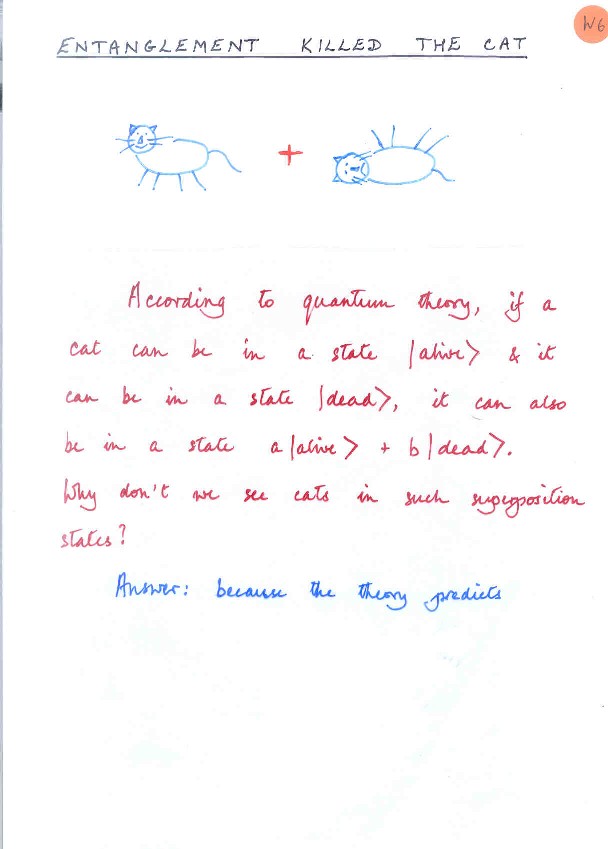 W6
ENTANGLEMENT KILLED THE CAT
+
According to quantum theory, if a
cat can be in a state |alive> & it
can be in a state |dead>, it can also
be in a state a|alive> + b|dead>.
Why don't we see cats in such superposition
states?
Answer: because the theory predicts